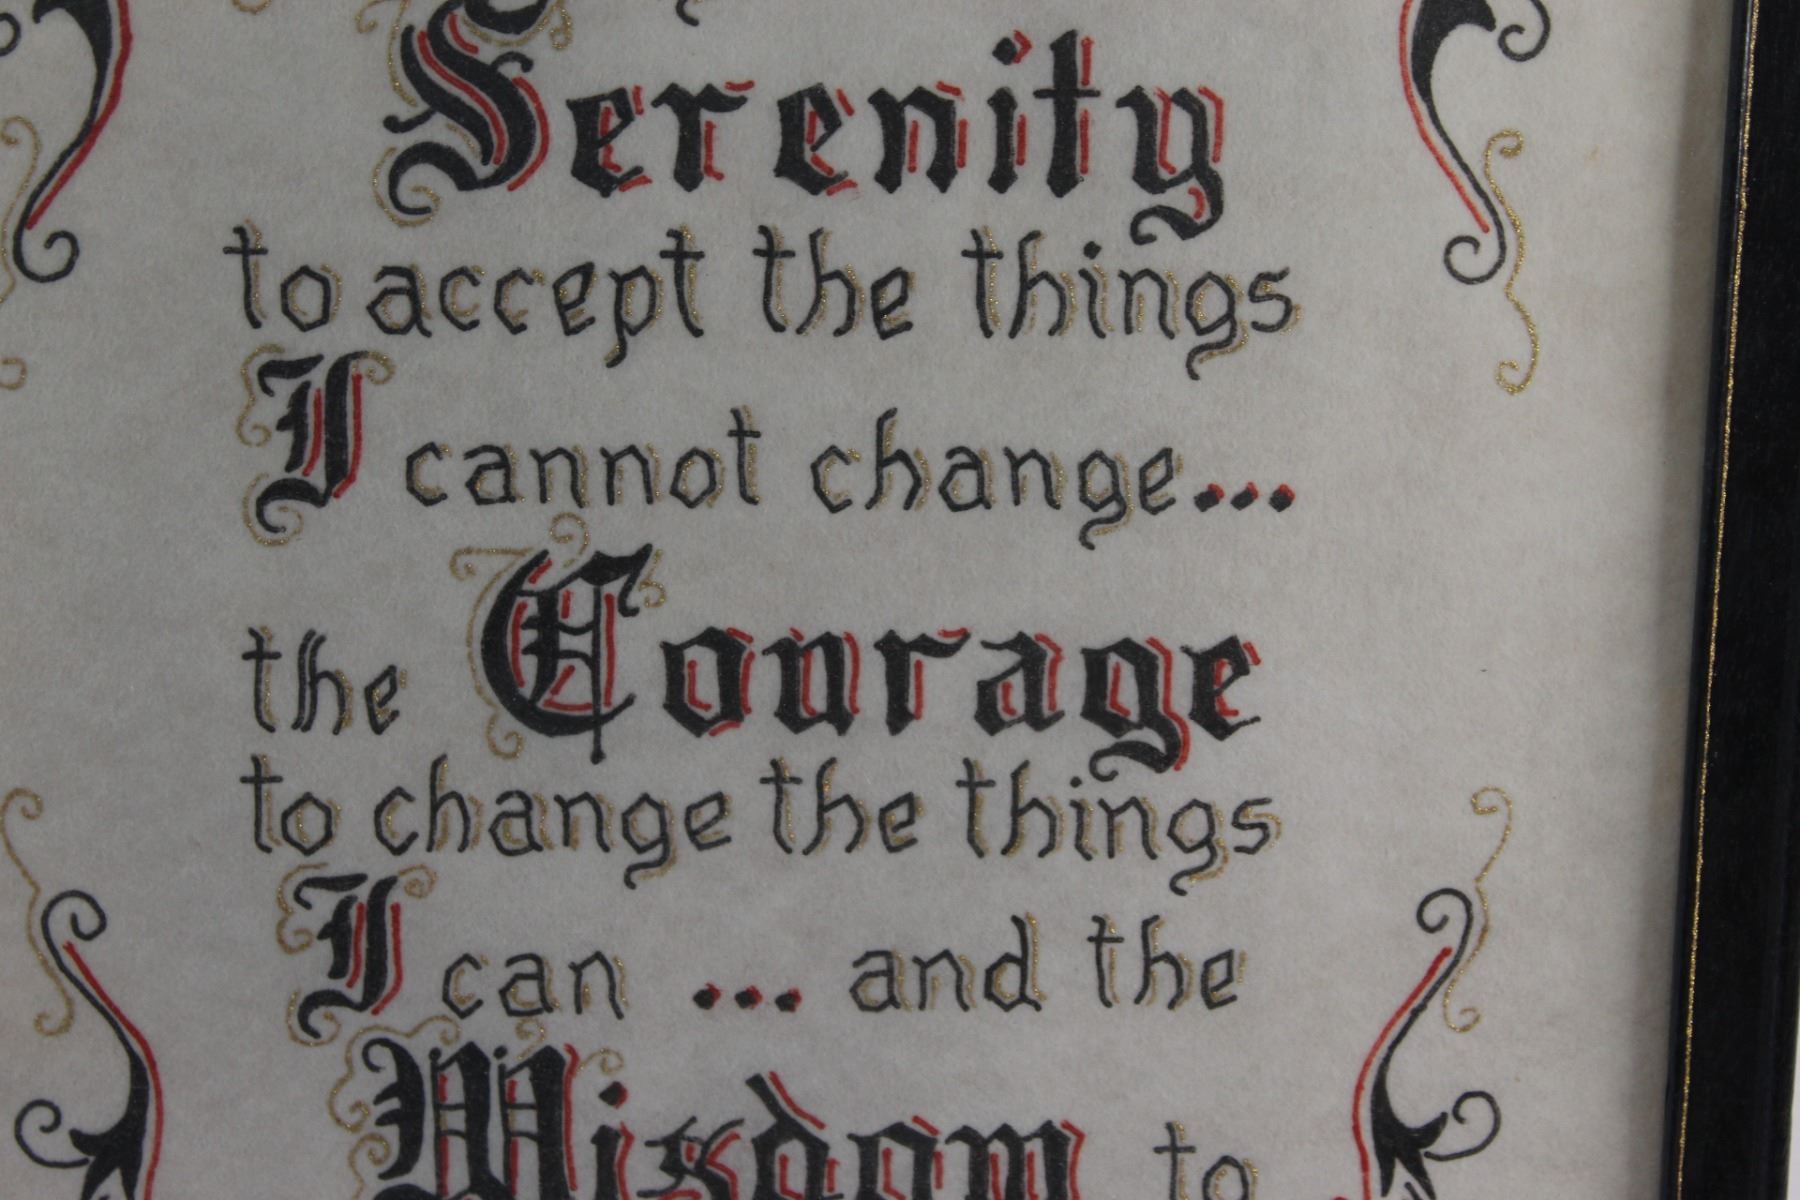 Serenity
to accept the things
I cannot change...
the Courage
to change the things
I can ... and the
Wisdom to